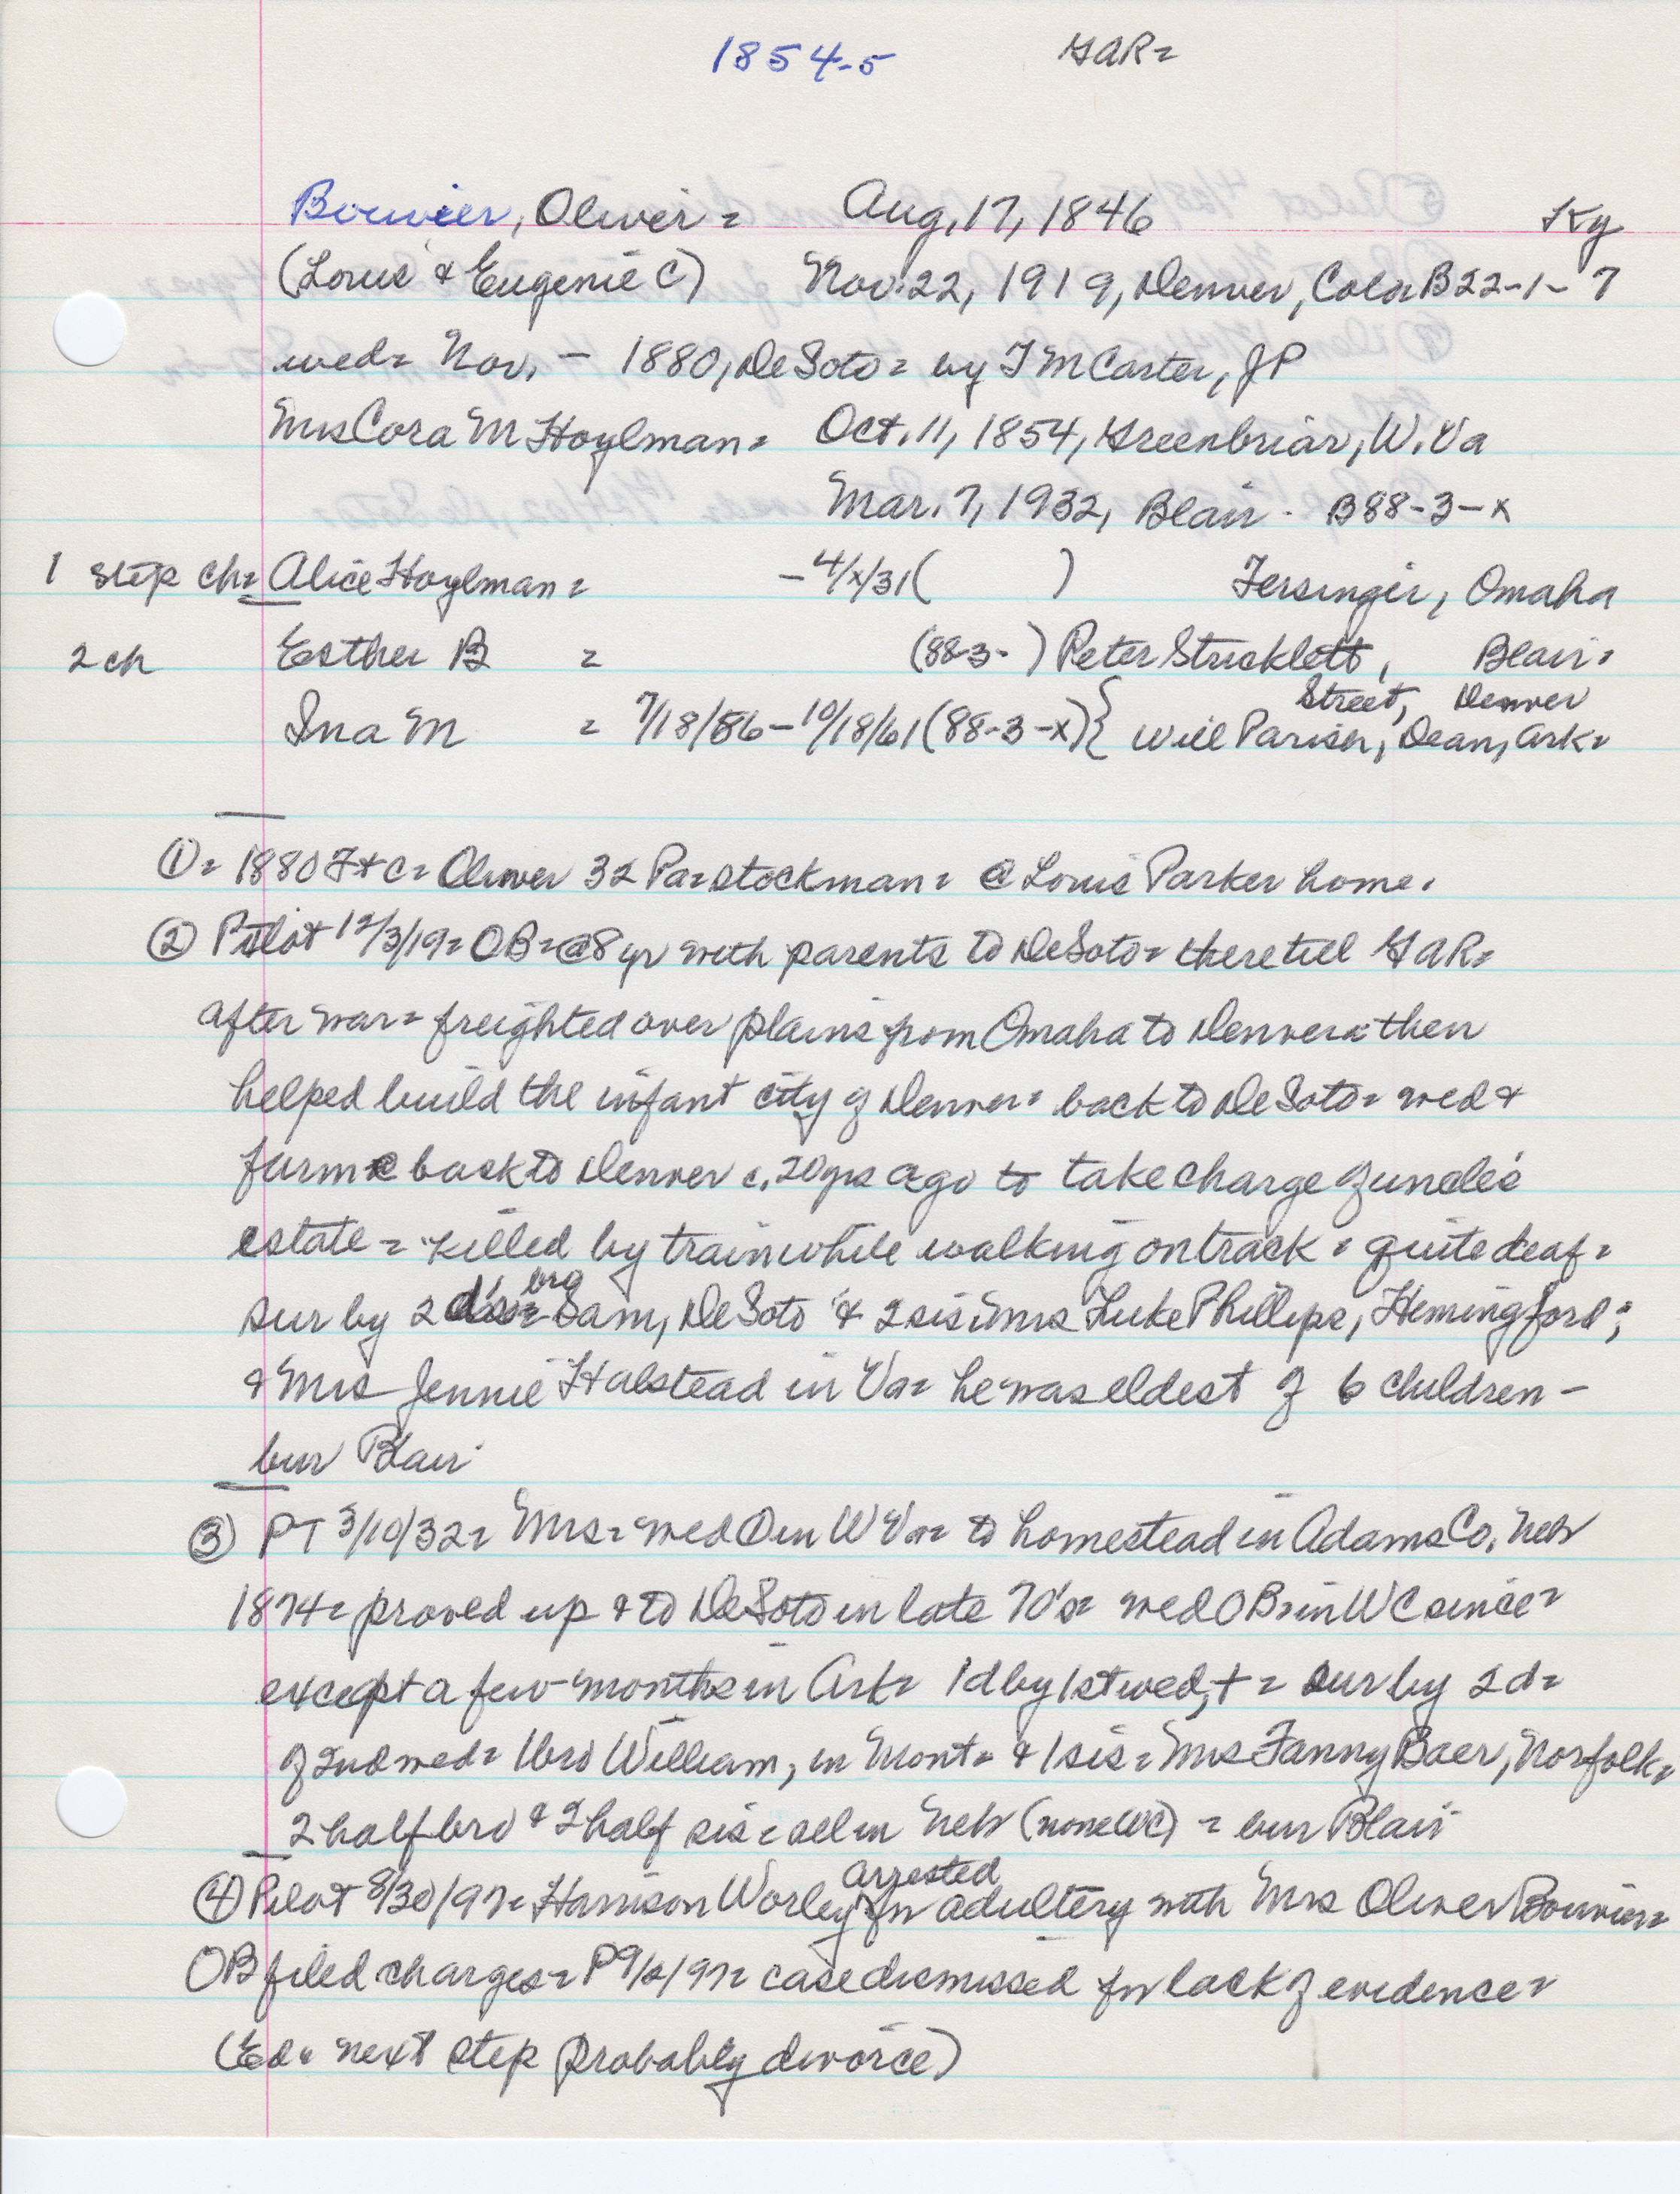 1854-5 GAR=
Bouvier, Oliver = Aug, 17, 1846 Ky
(Louis & Eugenie C) Nov. 22, 1919, Denver, Colo B22-1-7
wed= Nov, - 1880, DeSoto= by T M Carter, JP
Mrs Cora M Hoylman= Oct. 11, 1854, Greenbriar, W. Va
Mar. 7, 1932, Blair - B88-3-x
1 step ch= Alice Hoylman = - 4/x/31 ( ) Fersinger, Omaha
2 ch Esther B = (88-3- ) Peter Stricklett, Blair=
Street, Denver
Ina M = 7/18/86 - 10/18/61 (88-3-x) { Will Pariser, Dean, Ark=
①= 1880 Ft C= Oliver 32 Pa= stockman= @ Louis Parker home.
② Pilot 12/3/19= OB= @8 yr with parents to DeSoto= there till GAR=
after war= freighted over plains from Omaha to Denver= then
helped build the infant city of Denver= back to DeSoto= wed &
farm= back to Denver c. 20 yrs ago to take charge of uncle's
estate= killed by train while walking on track= quite deaf=
bro
sur by 2 d's= Sam, DeSoto & 2 sis= Mrs Luke Phillips, Hemingford;
& Mrs Jennie Halstead in Va= he was eldest of 6 children -
bur Blair
③ PT 3/10/32= Mrs= wed ① in W Va= to homestead in Adams Co, Neb
1874= proved up & to DeSoto in late 70's= wed OB= in WC since=
except a few months in Ark= 1 d by 1st wed, += sur by 2 d=
of 2nd wed= 1 bro William, in Mont= & 1 sis= Mrs Fanny Baer, Norfolk=
2 half bro & 2 half sis= all in Neb (none WC) = bur Blair
arrested
④ Pilot 8/30/97= Harrison Worley for adultery with Mrs Oliver Bouvier=
OB filed charges= P 9/ /97= case dismissed for lack of evidence=
(Ed= next step probably divorce)